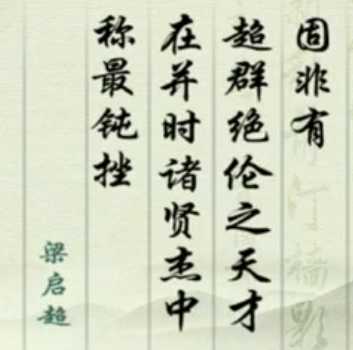 固非有
超群绝伦之天才
在并时诸贤杰中
称最钝拙
梁启超